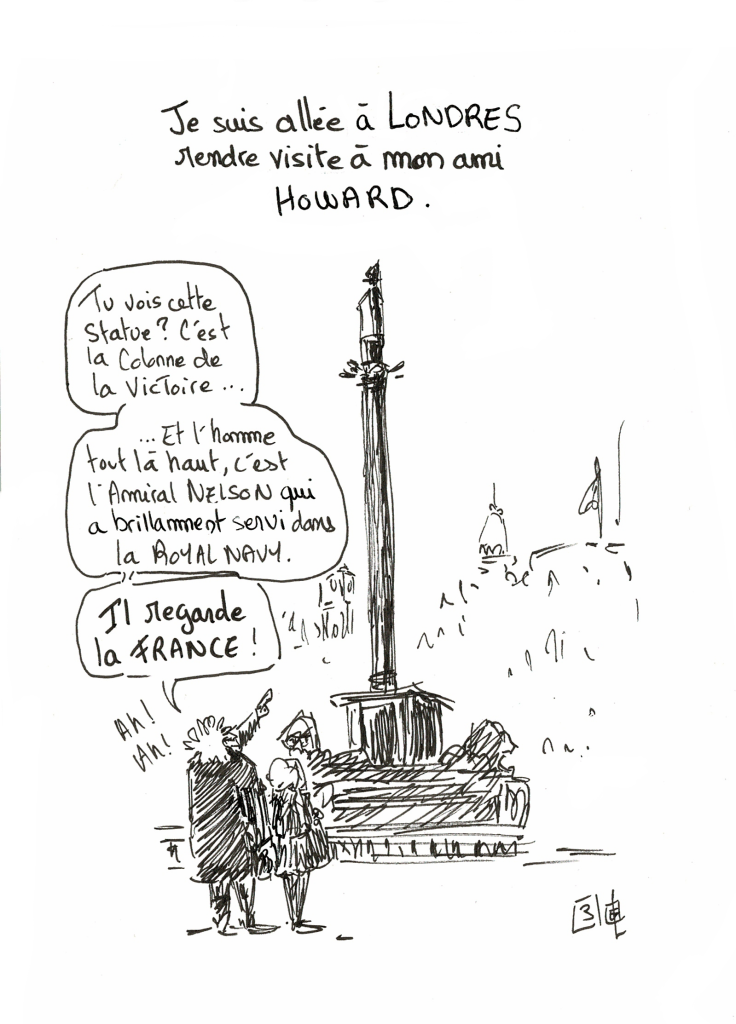 Je suis allée à LONDRES
rendre visite à mon ami
HOWARD.
Tu vois cette
statue? C'est
la Colonne de
la Victoire...
...Et l'homme
tout là haut, c'est
l'Amiral NELSON qui
a brillamment servi dans
la ROYAL NAVY.
Il regarde
la FRANCE!
AH!
AH!